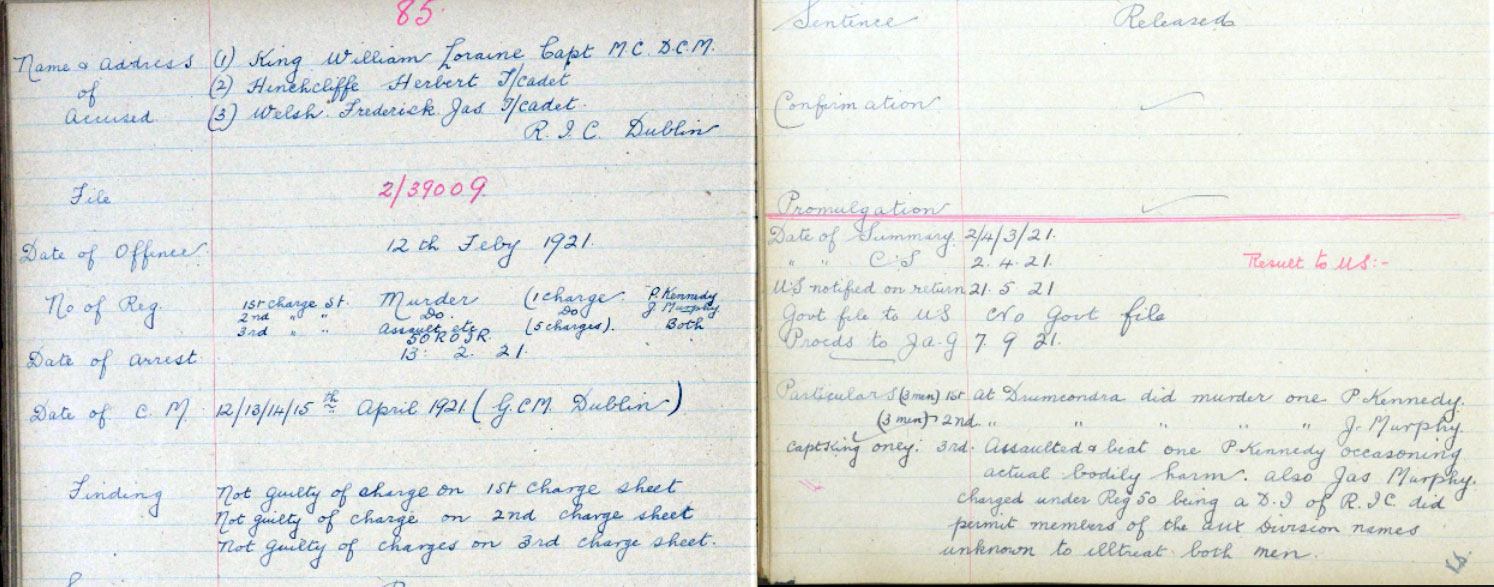 85.
Name & Address (1) King William Loraine Capt M.C. D.C.M.
of (2) Hinchcliffe Herbert T/cadet
Accused. (3) Welsh Frederick Jas T/cadet.
R.I.C. Dublin
File 2/39009.
Date of Offence 12th Feby 1921.
No of Reg. 1st charge St. Murder (1 charge. P. Kennedy
2nd " " Do. Do J. Murphy
3rd " " Assault etc (5 charges). Both
50 R O I R.
Date of arrest 13. 2. 21.
Date of C. M. 12/13/14/15th April 1921 (G.C.M. Dublin)
Finding Not guilty of charge on 1st charge sheet
Not guilty of charge on 2nd charge sheet
Not guilty of charges on 3rd charge sheet.
Sentence Released
Confirmation
Promulgation
Date of Summary 2/4/3/21.
" " C.S 2. 4. 21. Result to US:-
U.S notified on return 21. 5 21
Govt file to US No Govt file
Proceds to J.A.G 7. 9 21.
Particulars (3 men) 1st At Drumcondra did murder one P. Kennedy.
(3 men) 2nd. " " " " " J. Murphy
Capt King only. 3rd. Assaulted & beat one P. Kennedy occasoning
actual bodily harm. also Jas Murphy.
charged under Reg 50 being a D.I of R.I.C. did
permit members of the aux Division names
unknown to illtreat both men.